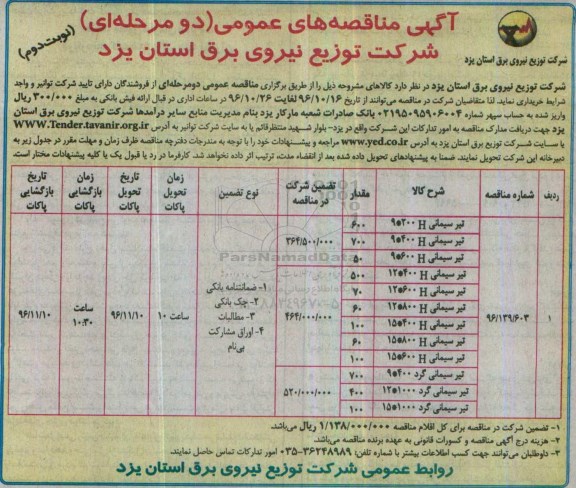 آگهی مناقصه‌های عمومی(دو مرحله‌ای)
شرکت توزیع نیروی برق استان یزد
(نوبت دوم)
شرکت توزیع نیروی برق استان یزد
شرکت توزیع نیروی برق استان یزد در نظر دارد کالاهای مشروحه ذیل را از طریق برگزاری مناقصه عمومی دومرحله‌ای از فروشندگان دارای تایید شرکت توانیر و واجد
شرایط خریداری نماید. لذا متقاضیان شرکت در مناقصه می‌توانند از تاریخ ۹۶/۱۰/۱۶ لغایت ۹۶/۱۰/۲۶ در ساعات اداری در قبال ارائه فیش بانکی به مبلغ ۳۰۰/۰۰۰ ریال
واریز شده به حساب سپهر شماره ۰۲۱۹۵۰۹۵۹۰۶۰۰۴ بانک صادرات شعبه مارکار یزد بنام مدیریت منابع سایر درآمدها شرکت توزیع نیروی برق استان
یزد جهت دریافت مدارک مناقصه به امور تدارکات این شرکت واقع در یزد- بلوار شهید منتظرقائم یا به سایت شرکت توانیر به آدرس WWW.Tender.tavanir.org.ir
یا سایت شرکت توزیع برق استان یزد به آدرس www.yed.co.ir مراجعه و پیشنهادات خود را با توجه به مندرجات دفترچه مناقصه ظرف زمان و مهلت مقرر در جدول زیر به
دبیرخانه این شرکت تحویل نمایند. ضمنا به پیشنهادهای تحویل داده شده بعد از انقضاء مدت، ترتیب اثر داده نخواهد شد. کارفرما در رد یا قبول یک یا کلیه پیشنهادات مختار است.
ردیف شماره مناقصه شرح کالا مقدار تضمین شرکت در مناقصه نوع تضمین زمان تحویل پاکات تاریخ تحویل پاکات زمان بازگشایی پاکات تاریخ بازگشایی پاکات
۱ ۹۶/۱۳۹/۶۰۳
تیر سیمانی H ۹*۲۰۰ ۶۰۰
تیر سیمانی H ۹*۴۰۰ ۷۰۰
تیر سیمانی H ۹*۶۰۰ ۵۰
۳۶۴/۵۰۰/۰۰۰
تیر سیمانی H ۱۲*۴۰۰ ۵۰۰
تیر سیمانی H ۱۲*۶۰۰ ۷۰
تیر سیمانی H ۱۲*۸۰۰ ۶۰
تیر سیمانی H ۱۵*۴۰۰ ۱۰۰
تیر سیمانی H ۱۵*۸۰۰ ۶۰
تیر سیمانی H ۱۵*۶۰۰ ۱۰۰
۴۶۴/۰۰۰/۰۰۰
تیر سیمانی گرد ۹*۴۰۰ ۷۰۰
تیر سیمانی گرد ۱۲*۱۰۰۰ ۴۰۰
تیر سیمانی گرد ۱۵*۱۰۰۰ ۱۰۰
۵۲۰/۰۰۰/۰۰۰
۱- ضمانتنامه بانکی
۲- چک بانکی
۳- مطالبات
۴- اوراق مشارکت
بی‌نام
ساعت ۱۰
۹۶/۱۱/۱۰
ساعت
۱۰:۳۰
۹۶/۱۱/۱۰
ParsNamadData
۱- تضمین شرکت در مناقصه برای کل اقلام مناقصه ۱/۱۳۸/۰۰۰/۰۰۰ ریال می‌باشد.
۲- هزینه درج آگهی مناقصه و کسورات قانونی به عهده برنده مناقصه می‌باشد.
۳- داوطلبان می‌توانند جهت کسب اطلاعات بیشتر با شماره تلفن: ۳۶۲۴۸۹۸۹-۰۳۵ امور تدارکات تماس حاصل نمایند.
روابط عمومی شرکت توزیع نیروی برق استان یزد